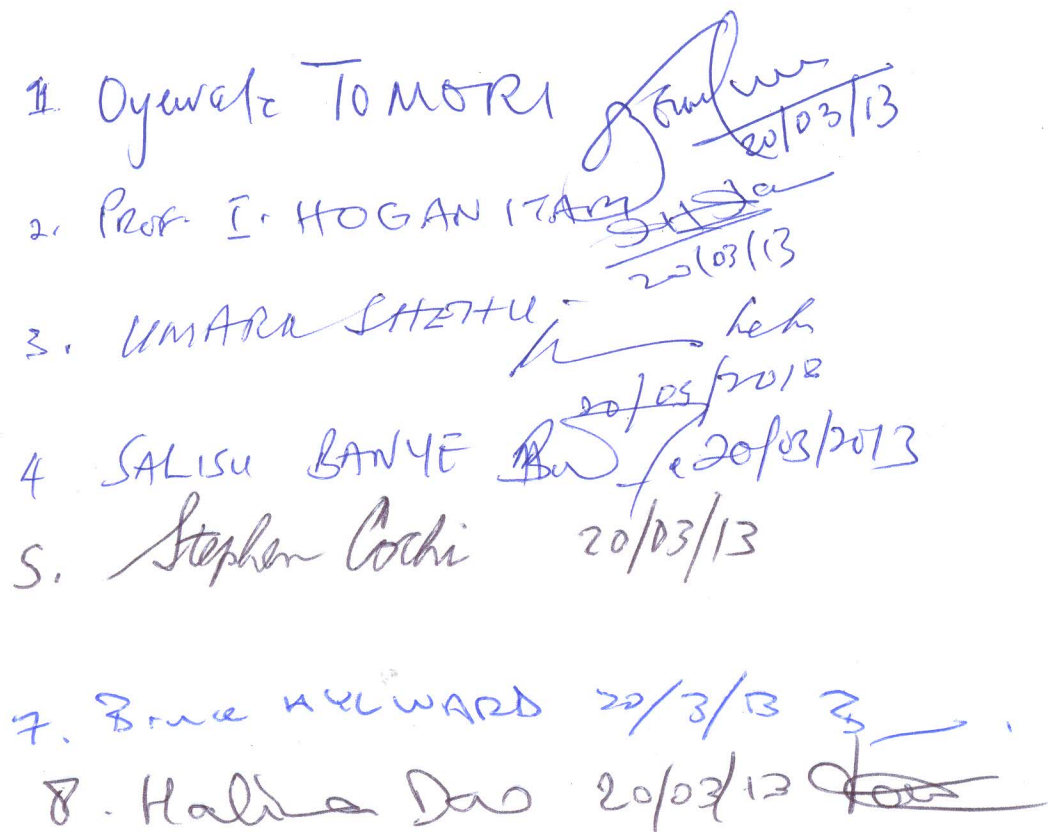 1. Oyewale TOMORI 20/03/13
2. PROF. I. HOGAN ITAM
20/03/13
3. UMARU SHEHU
20/03/2013
4 SALISU BANYE 20/03/2013
5. Stephen Cochi 20/03/13
7. Bruce AYLWARD 20/3/13
8. Halima Dao 20/03/13